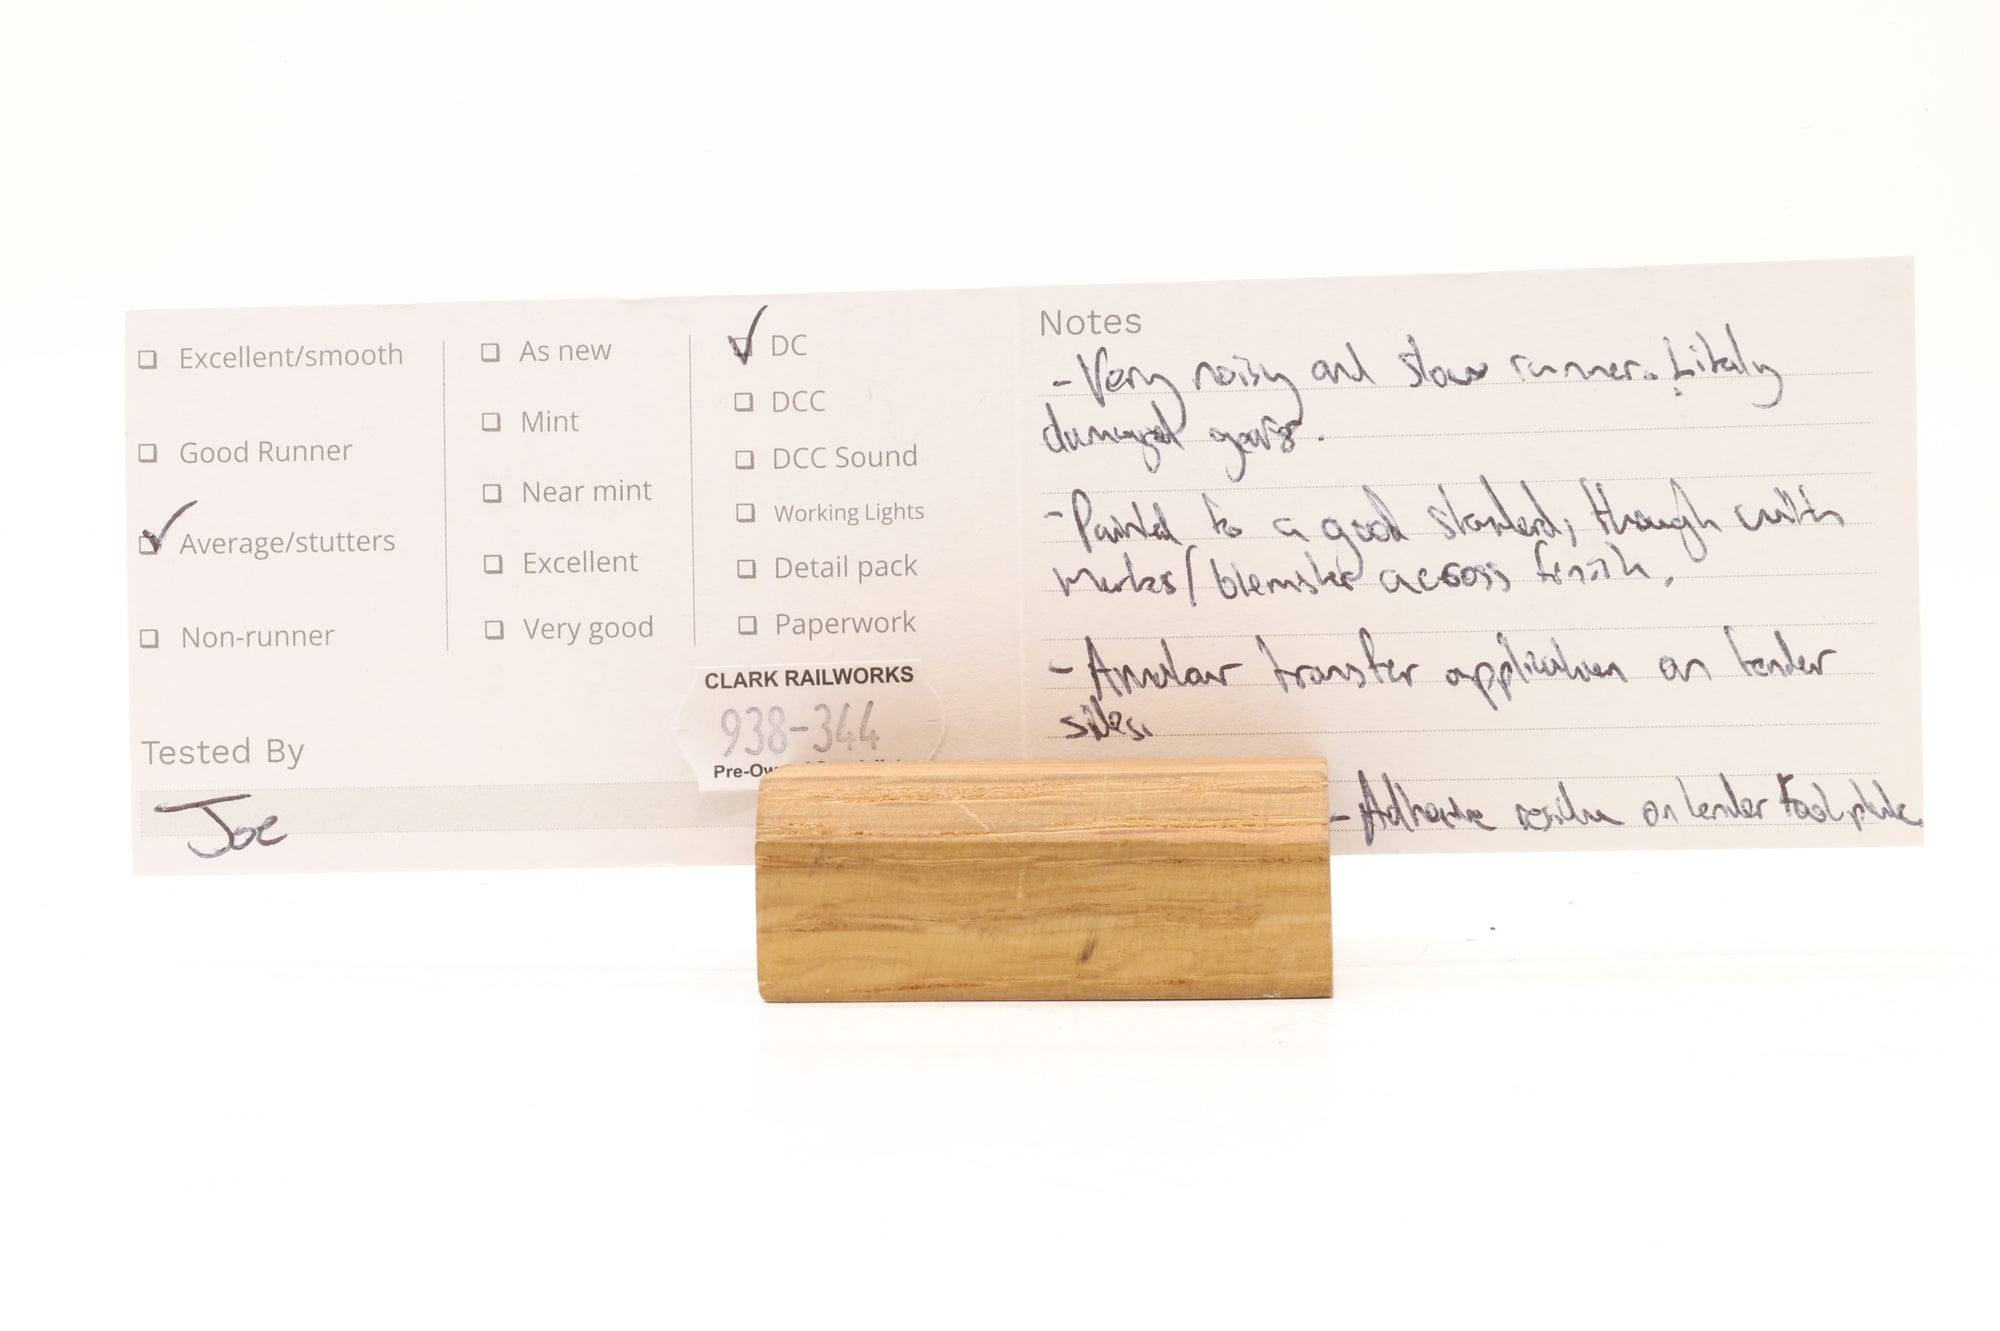 Excellent/smooth
Good Runner
Average/stutters
Non-runner
As new
Mint
Near mint
Excellent
Very good
DC
DCC
DCC Sound
Working Lights
Detail pack
Paperwork
CLARK RAILWORKS
938-344
Tested By
Joe
Notes
- Very noisy and slow runner. Likely
damaged gears.
- Painted to a good standard, though with
marks/blemishes across finish.
- transfer application on tender
sides.
- Adhesive residue on tender footplate